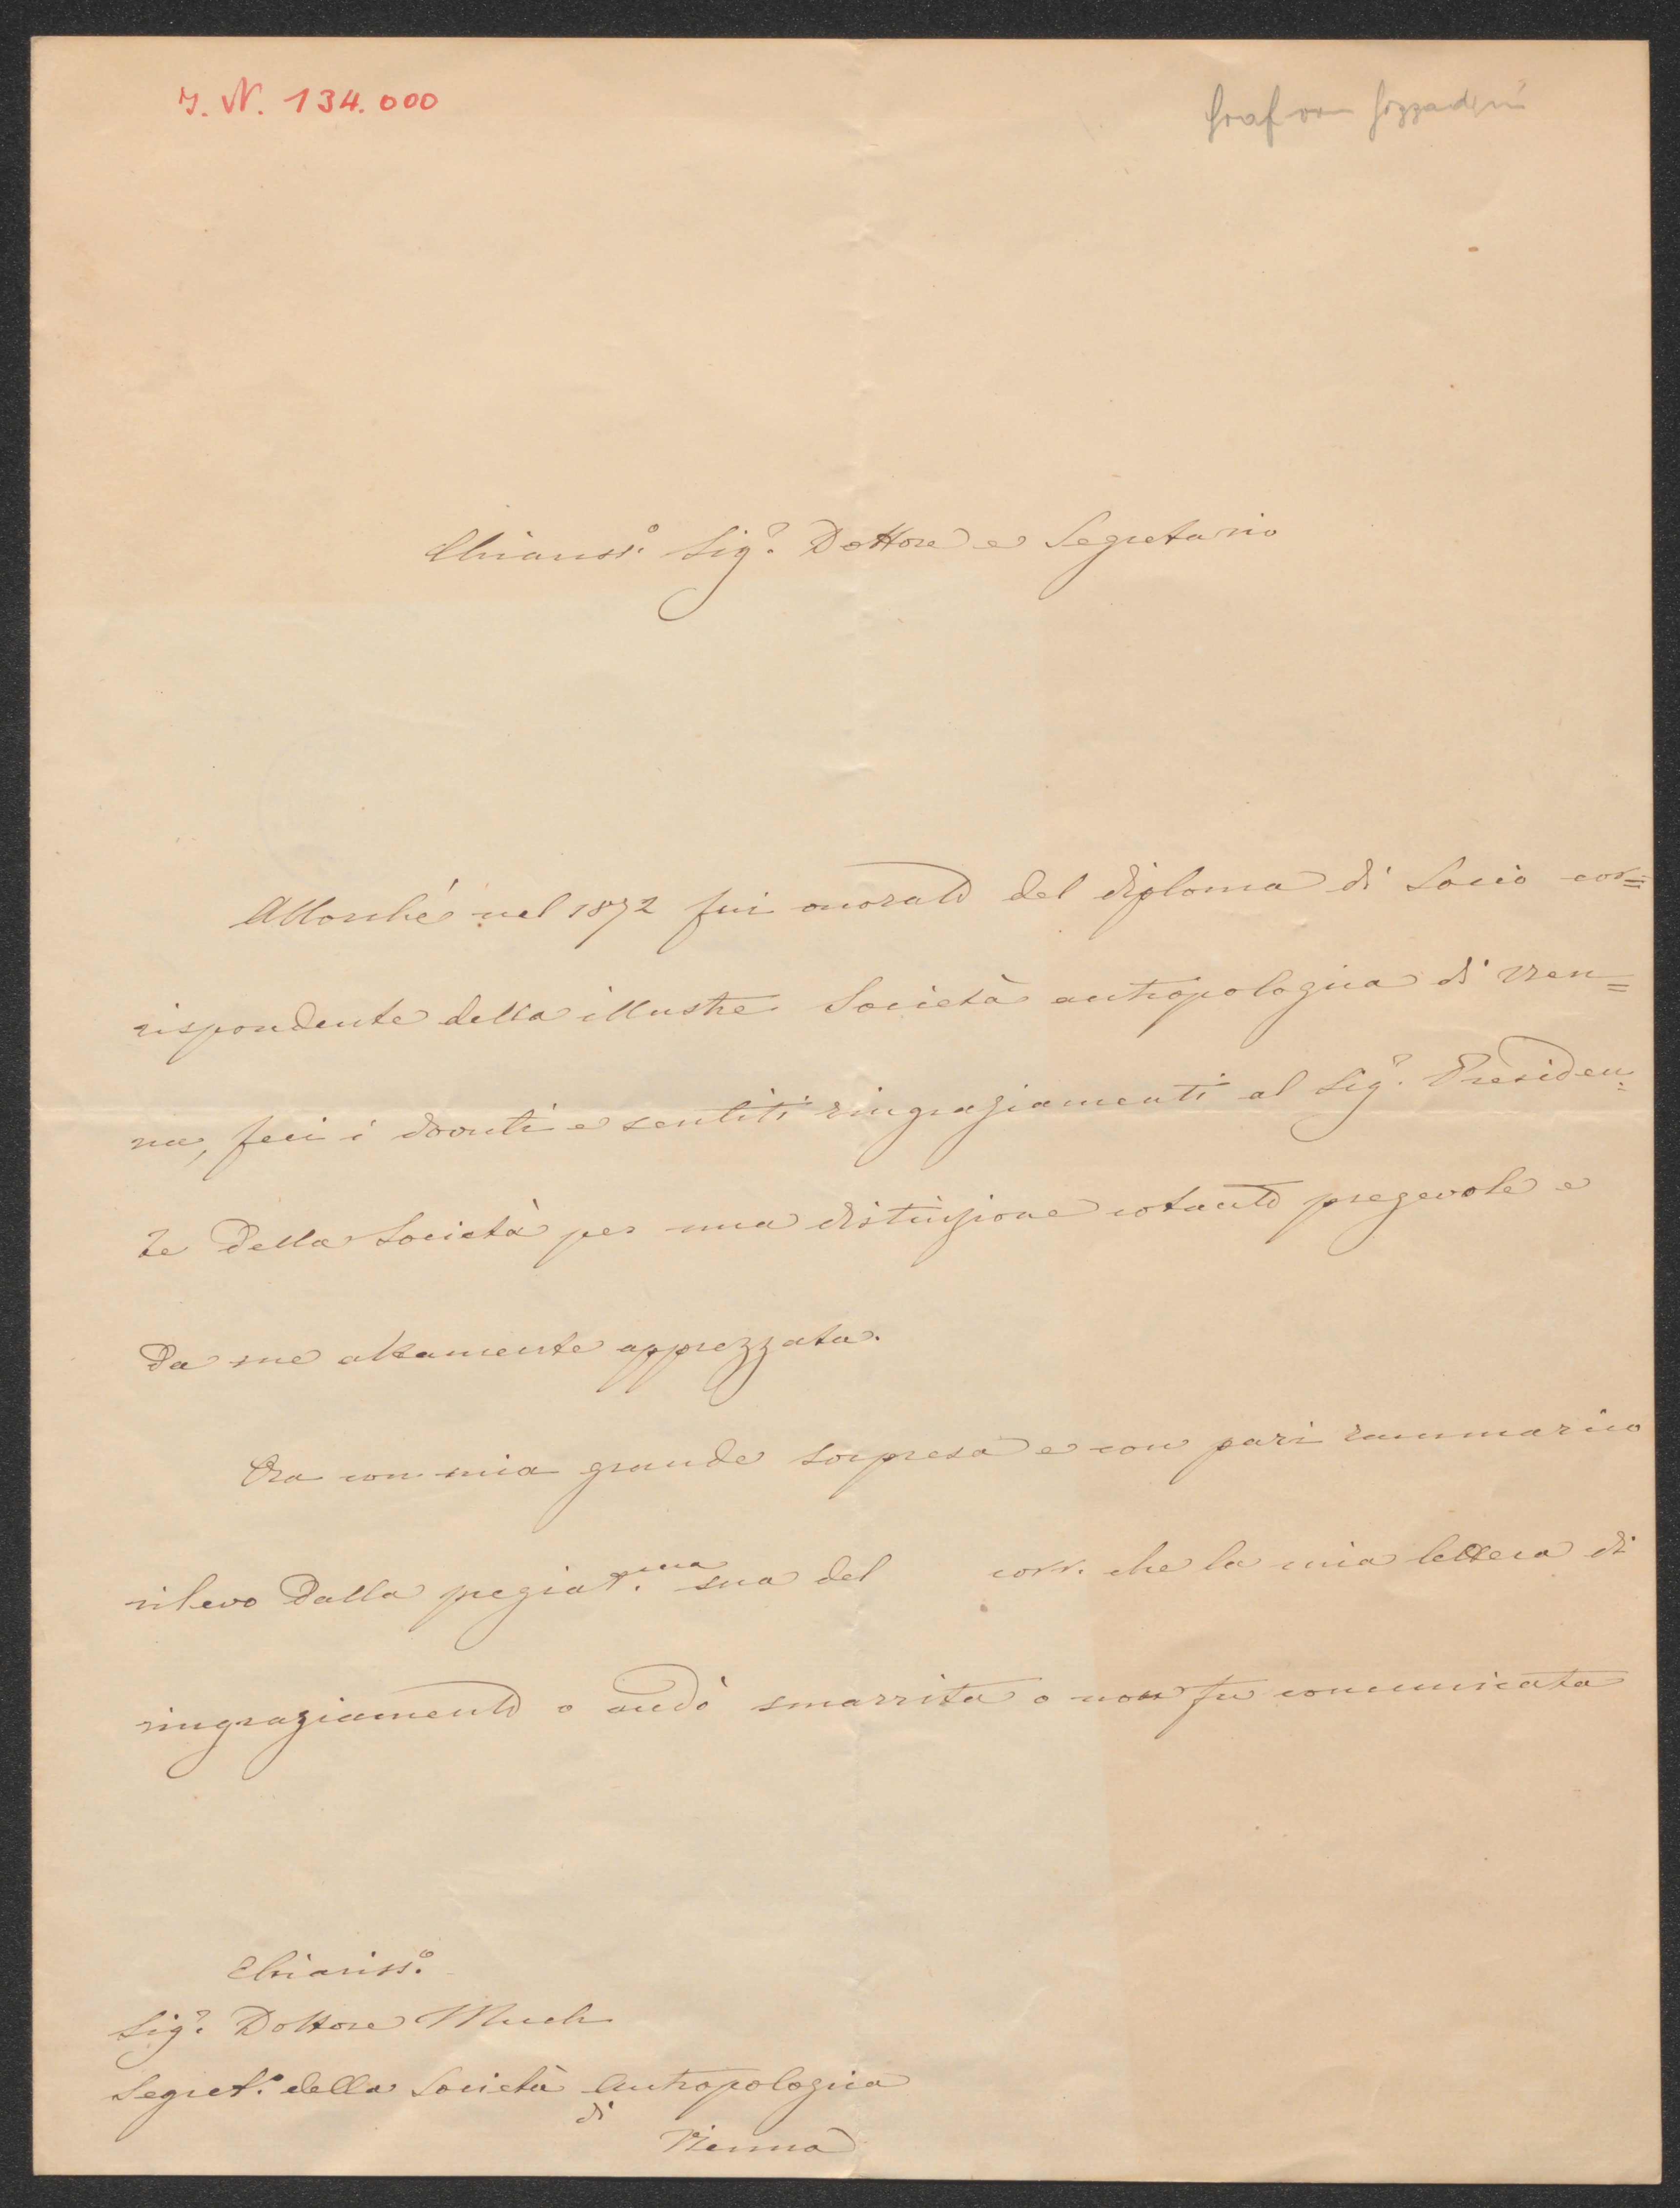 J. N. 134.000
Graf von Gozzadini
Chiariss.º Sig.r Dottore e Segretario
Allorché nel 1872 fui onorato del diploma di Socio cor=
rispondente della illustre Società antropologica di Vien=
na, feci i dovuti e sentiti ringraziamenti al Sig.r Presiden=
te della Società per una distinzione cotanto pregevole e
da me altamente apprezzata.
Ora con mia grande sorpresa e con pari rammarico
rilevo dalla pregiat.ma sua del corr. che la mia lettera di
ringraziamento o andò smarrita o non fu comunicata
Chiariss.º
Sig.r Dottore Much
Segret.º della Società Antropologica
di
Vienna